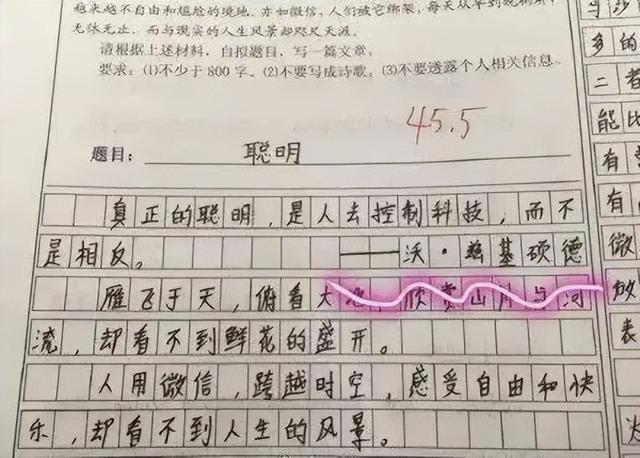 越来越不自由和尴尬的境地。亦如微信，人们被它绑架，每天从早到晚
无休无止，而与现实的人生风景却咫尺天涯。
请根据上述材料，自拟题目，写一篇文章。
要求：(1)不少于800字。(2)不要写成诗歌；(3)不要透露个人相关信息
45.5
题目：聪明
真正的聪明，是人去控制科技，而不
是相反。——沃·兹基硕德
雁飞于天，俯看大地，欣赏山月与河
流，却看不到鲜花的盛开。
人用微信，跨越时空，感受自由和快
乐，却看不到人生的风景。
多的
二者
能比
有
有
微
表
火